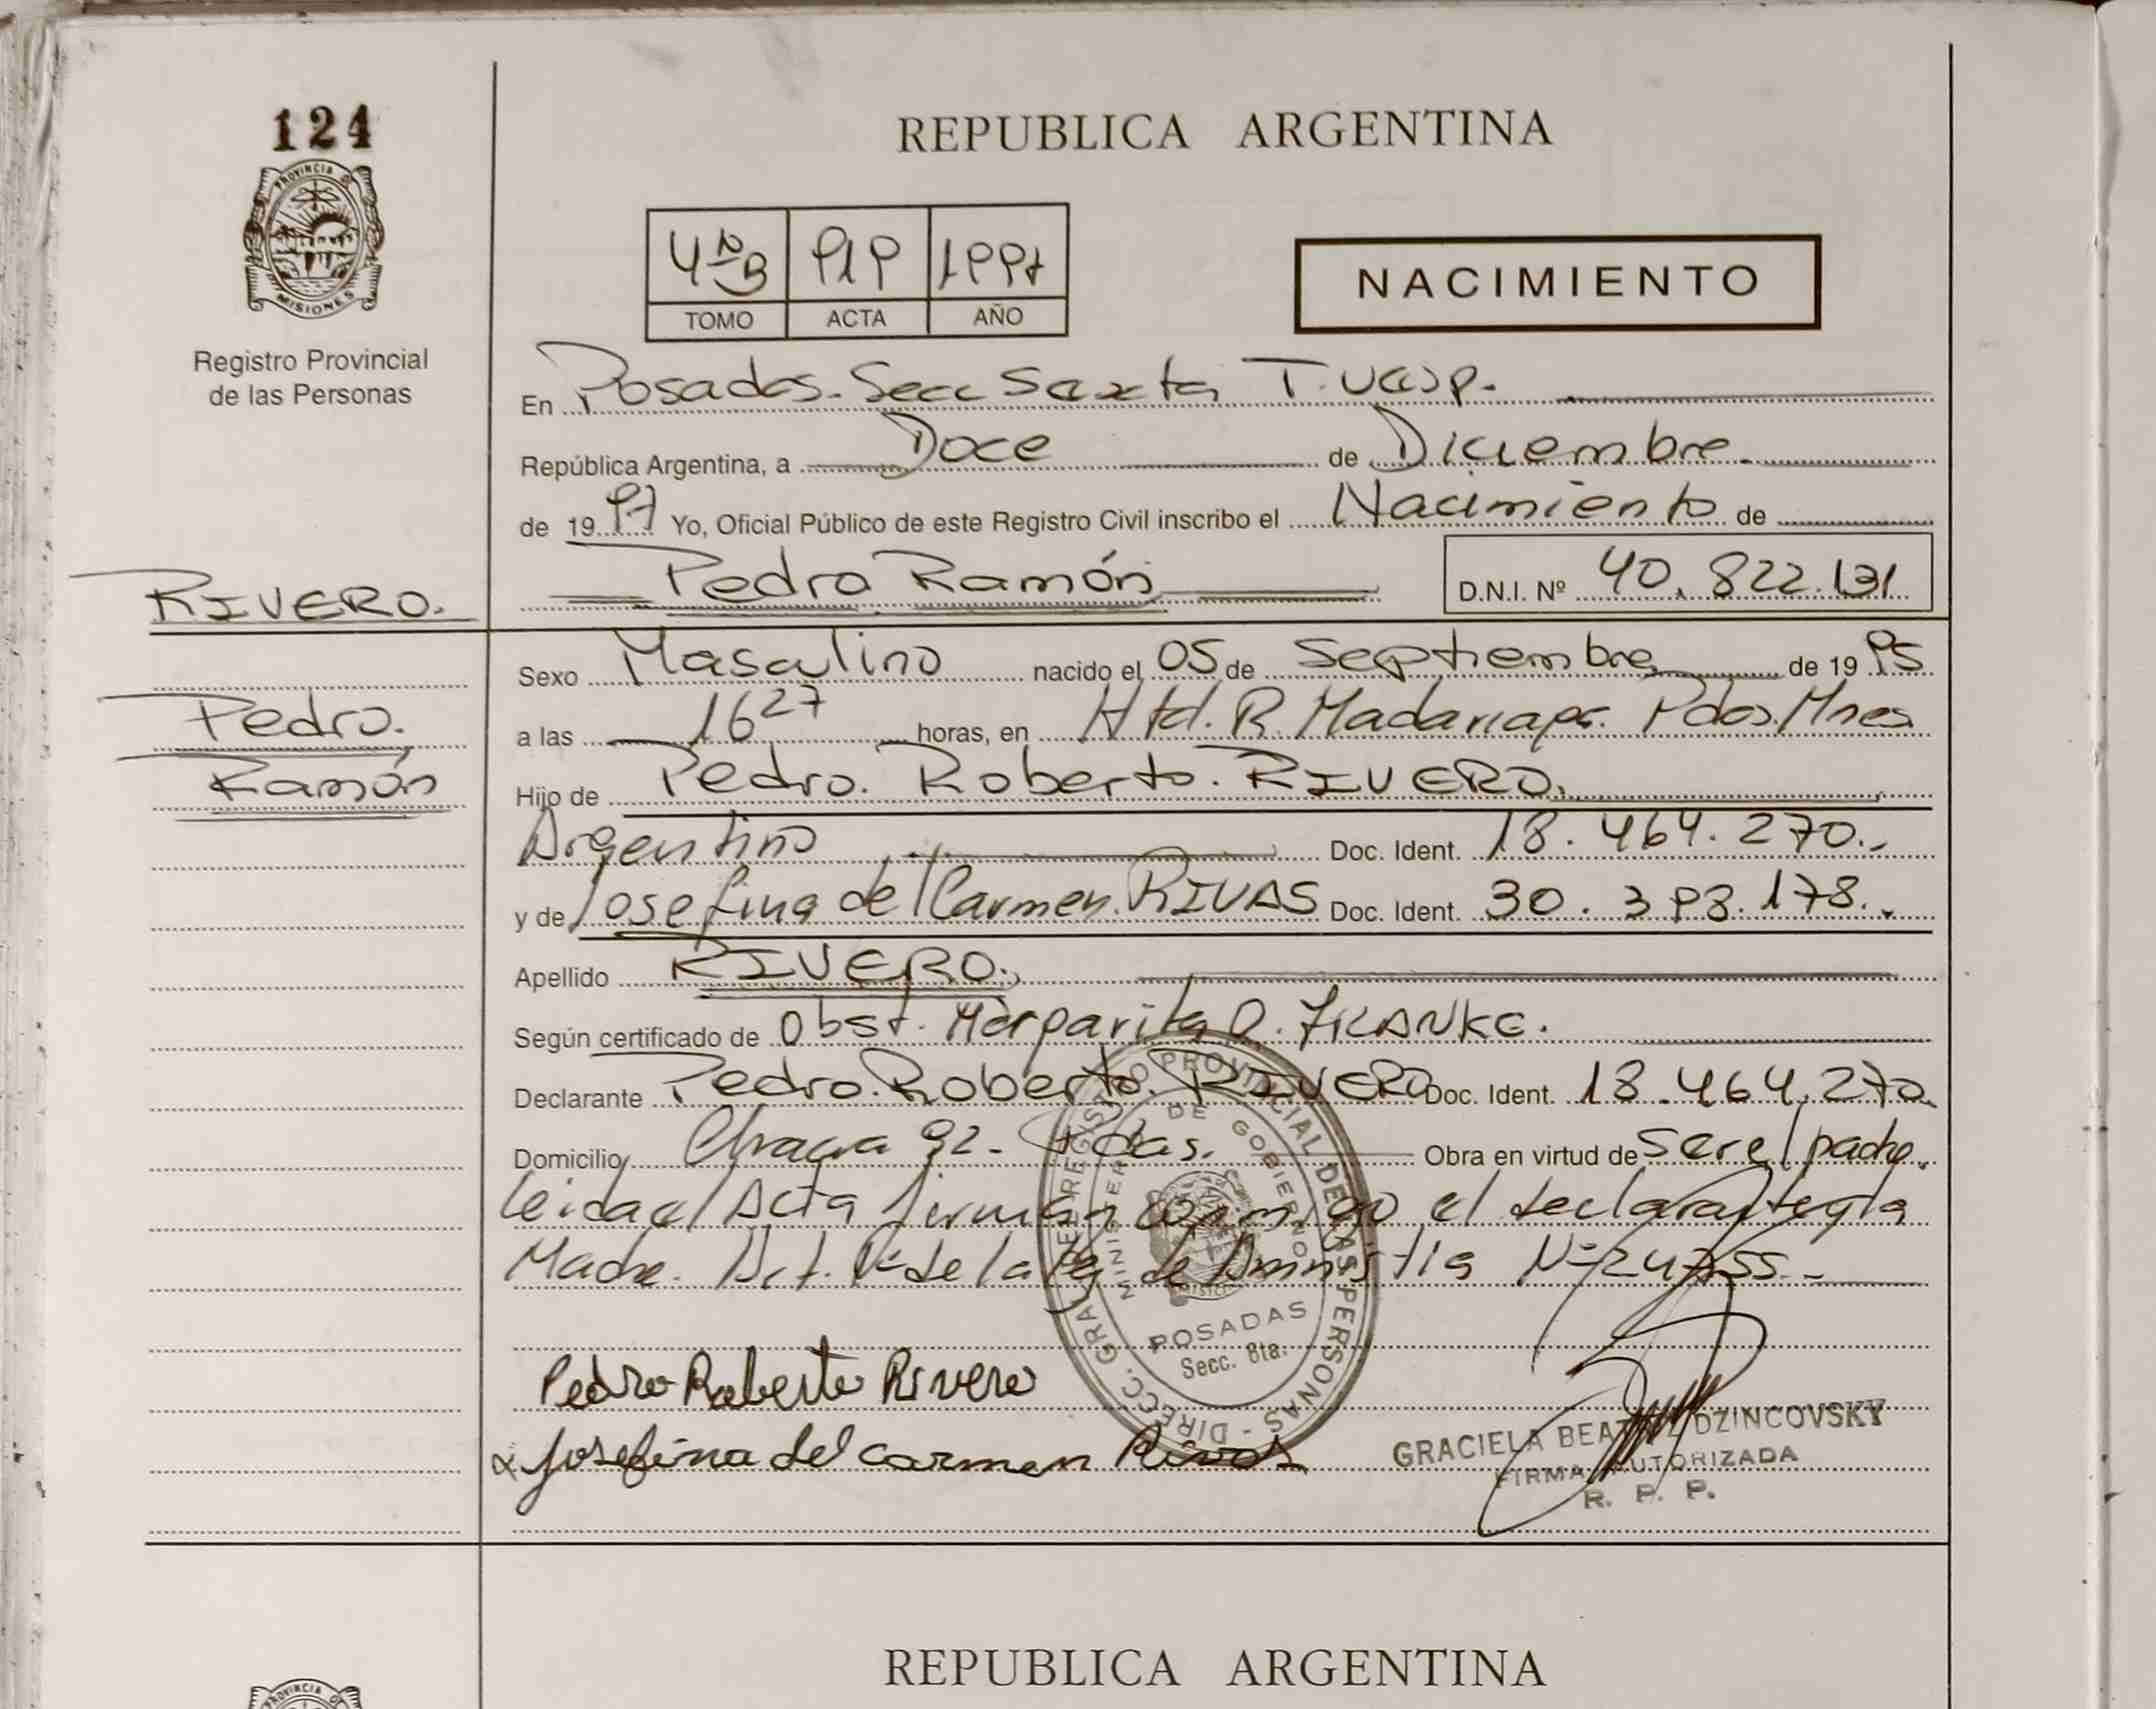 124
REPUBLICA ARGENTINA
PROVINCIA D
MISIONES
4º B 919 1997
TOMO ACTA AÑO
NACIMIENTO
Registro Provincial
de las Personas
En Posadas. Secc Sexta T.
República Argentina, a Doce de Diciembre
de 1997 Yo, Oficial Público de este Registro Civil inscribo el Nacimiento de
RIVERO.
Pedro Ramón D.N.I. Nº 40.822.131
Sexo Masculino nacido el 05 de Septiembre de 1995
Pedro.
a las 16 27 horas, en Htd. R. Madariaga. Pdas. Mnes.
Ramón
Hijo de Pedro. Roberto. RIVERO.
Argentino Doc. Ident. 18.464.270.-
y de Josefina del Carmen. RIVAS Doc. Ident. 30.393.178.-
Apellido RIVERO.
Según certificado de Obst. Margarita O. FRANKE.
Declarante Pedro. Roberto. RIVERO Doc. Ident. 18.464.270.
Domicilio Chacra 92- Pdas. Obra en virtud de ser el padre.
leida el Acta firman conmigo el declarante y la
Madre. Art. 1º de la ley de Amnistia Nº 24755.-
DIRECC. GRAL. DEL REGISTRO PROVINCIAL DE LAS PERSONAS -
MINISTERIO DE GOBIERNO
POSADAS
Secc. 6ta.
Pedro Roberto Rivero
Josefina del Carmen Rivas
GRACIELA BEATRIZ DZINCOVSKY
FIRMA AUTORIZADA
R. P. P.
REPUBLICA ARGENTINA
PROVINCIA D